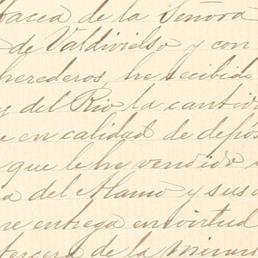 tacea de la Señora
de Valdivielso y con
herederos, he recibido
y del Rio la cantid
e en calidad de depós
que le he vendido
a del Alamo y sus a
me entrega en virtud
tercera de la minu